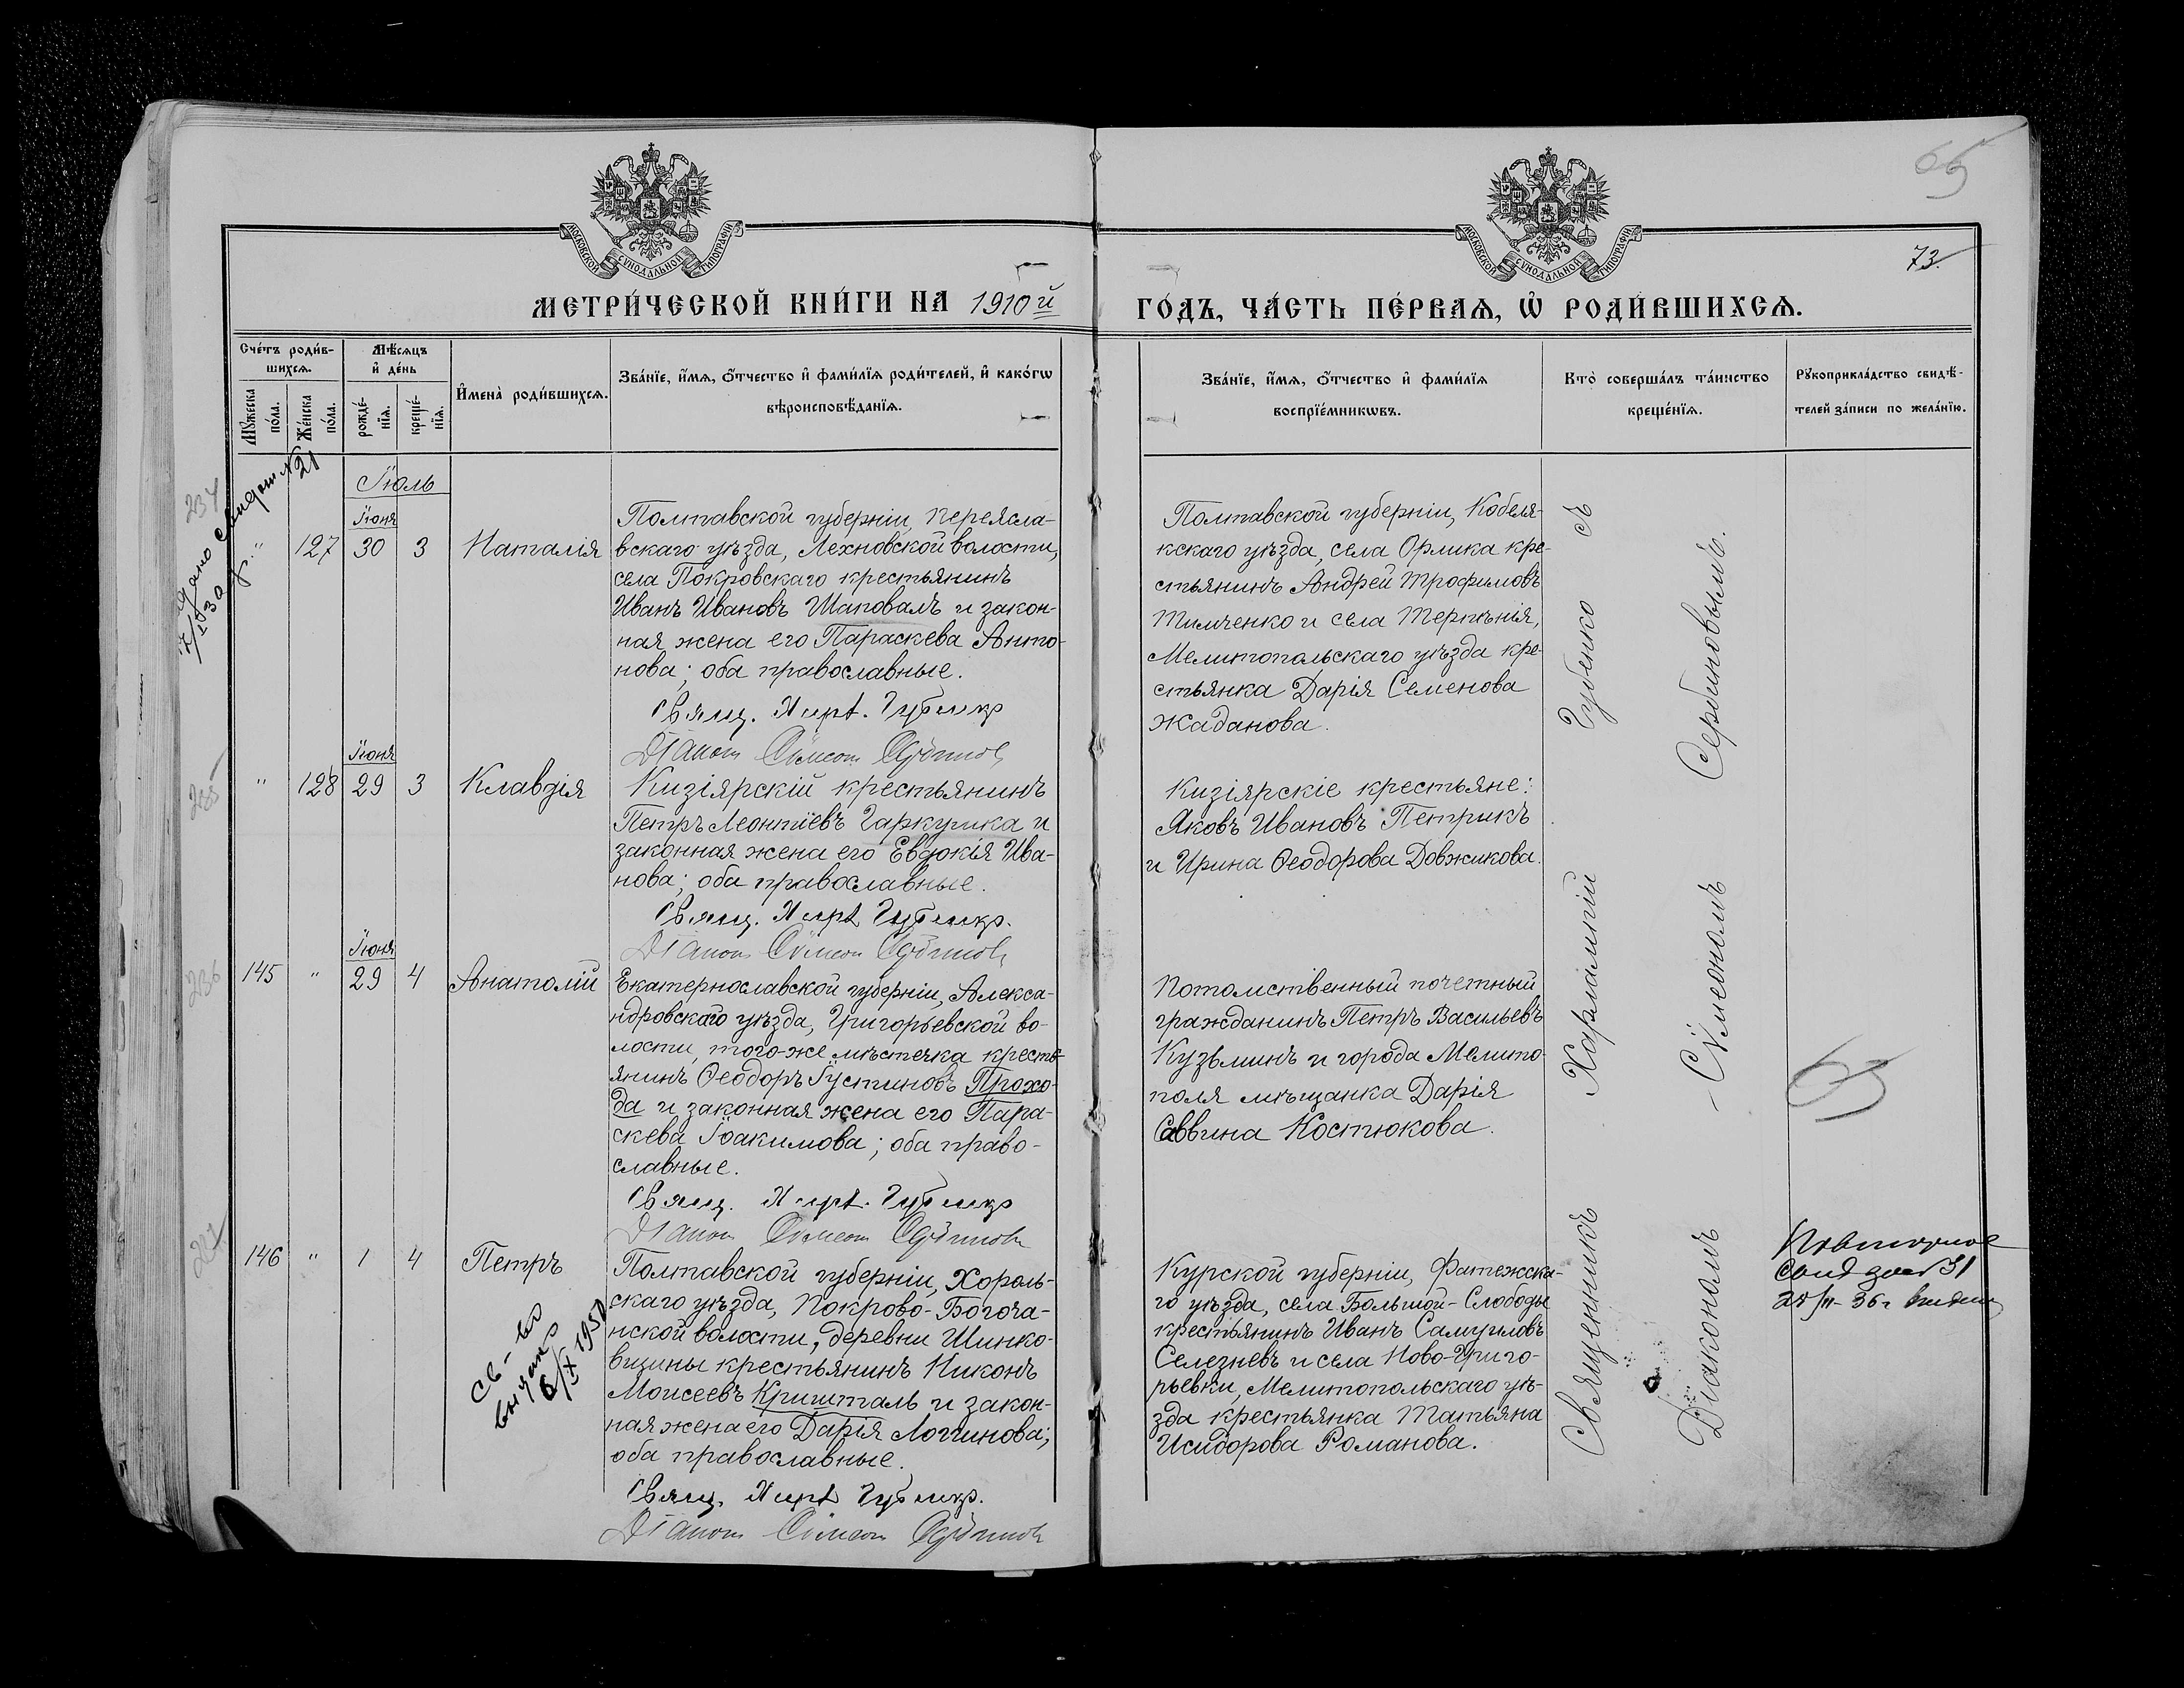 65
73.
МОСКОВСКОЙ СѴНОДАЛЬНОЙ ТИПОГРАФІИ
МОСКОВСКОЙ СѴНОДАЛЬНОЙ ТИПОГРАФІИ
МЕТРИ́ЧЕСКОЙ КНИ́ГИ НА 1910й
ГО́ДЪ, ЧА́СТЬ ПЕ́РВАѦ, Ѽ РОДИ́ВШИХСѦ.
Сче́тъ роди́в-
шихсѧ.
Мꙋ́жеска
по́ла.
Же́нска
по́ла.
Мѣ́сѧцъ
и҆ де́нь
рожде́-
нїѧ.
креще́-
нїѧ.
И҆мена̀ роди́вшихсѧ.
Зва́нїе, и҆́мѧ, ѻ҆́тчество и҆ фами́лїѧ роди́телей, и҆ како́гѡ
вѣроисповѣ́данїѧ.
Зва́нїе, и҆́мѧ, ѻ҆́тчество и҆ фами́лїѧ
воспрїе́мникѡвъ.
Кто̀ соверша́лъ та́инство
креще́нїѧ.
Рꙋкоприкла́дство свидѣ́-
телей за́писи по жела́нїю.
21
234
Іюль
Іюня
" 127 30 3 Наталія
Полтавской губерніи, Переясла-
вскаго уѣзда, Лехновской волости,
села Покровскаго крестьянинъ
Иванъ Ивановъ Шаповалъ и закон-
ная жена его Параскева Анто-
нова; оба православные.
Свящ. Харл. Губенко
Діаконъ Сѵмеонъ Сербиновъ
Полтавской губерніи, Кобеля-
кскаго уѣзда, села Орлика кре-
стьянинъ Андрей Трофимовъ
Тимченко и села Терпѣнія,
Мелитопольскаго уѣзда кре-
стьянка Дарія Семенова
Жаданова.
235
Іюня
" 128 29 3 Клавдія
Кизіярскій крестьянинъ
Петръ Леонтіевъ Гаркушка и
законная жена его Евдокія Ива-
нова; оба православные.
Свящ. Харл. Губенко.
Діаконъ Сѵмеонъ Сербиновъ
Кизіярскіе крестьяне:
Яковъ Ивановъ Петрикъ
и Ирина Ѳеодорова Довжикова.
236
Іюня
145 " 29 4 Анатолій
Екатеринославской губерніи, Алекса-
ндровскаго уѣзда, Григорьевской во-
лости, того-же мѣстечка кресть-
янинъ Ѳеодоръ Іустиновъ Прохо-
да и законная жена его Пара-
скева Іоакимова; оба право-
славные.
Свящ. Харл. Губенко
Діаконъ Сѵмеонъ Сербиновъ
Потомственный почетный
гражданинъ Петръ Васильевъ
Кузьминъ и города Мелито-
поля мѣщанка Дарія
Саввина Костюкова.
65
237
146 " 1 4 Петръ
Полтавской губерніи, Хороль-
скаго уѣзда, Покрово-Богоча-
нской волости, деревни Шинко-
визины крестьянинъ Никонъ
Моисеевъ Кришталь и закон-
ная жена его Дарія Логинова;
оба православные.
Свящ. Харл. Губенко.
Діаконъ Сѵмеонъ Сербиновъ
Св-во
выдано
6/IX 1950
Курской губерніи, Фатежска-
го уѣзда, села Большой-Слободы
крестьянинъ Иванъ Самуиловъ
Селезневъ и села Ново-Григо-
рьевки, Мелитопольскаго уѣ-
зда крестьянка Татьяна
Исидорова Романова.
Священникъ Харлампій Губенко съ
Діакономъ Сѵмеономъ Сербиновымъ.
Повторное